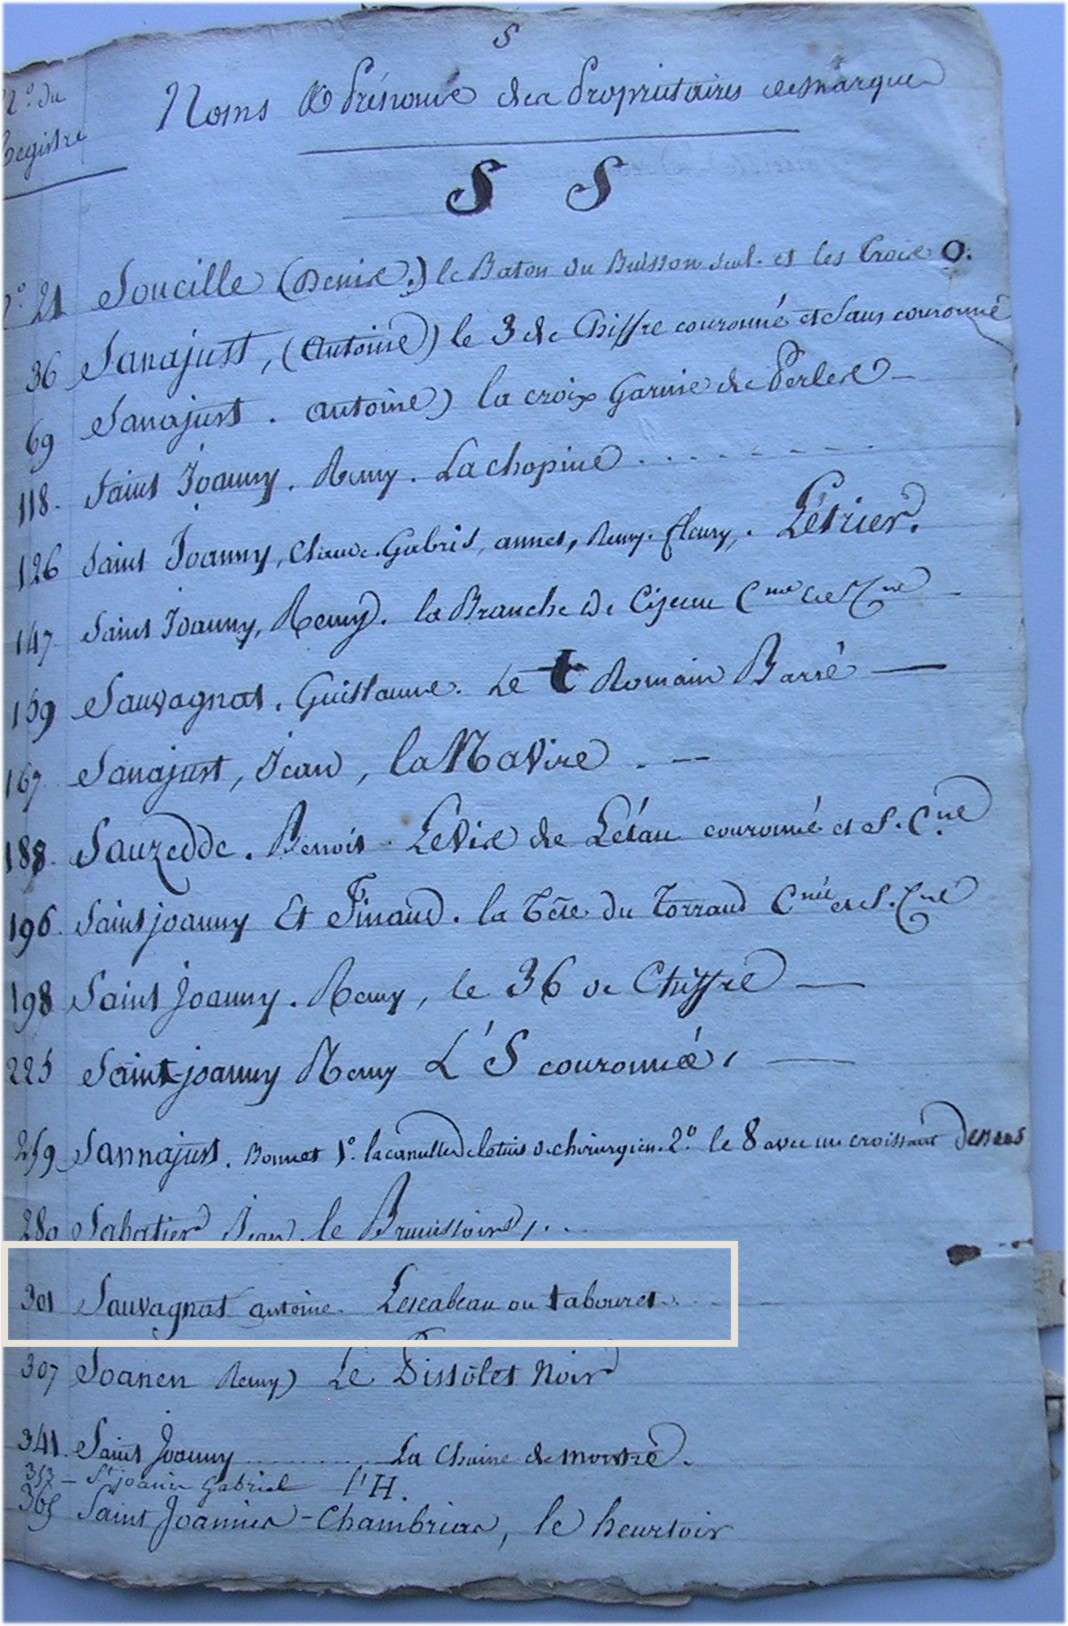 S
N.º du Noms & Prénoms des Propriétaires de marque
Registre
S S
N.º 21 Soucille (Denis.) le Baton du Buisson seul. et les Croix O.
36 Sanajust, (Antoine) le 3 de Chiffre couronné et sans couronne
69 Sanajust. antoine) la croix Garnie de Perles
118. Saint Joanny. Remy. La chopine
126 Saint Joanny, Claude. Gabriel, annet, Remy. fleury,. L'étrier.
147 Saint Joanny, Remy. la Branche de Cizeau C.née et S. C.né
159 Sauvagnat. Guillaume. Le t Romain Barré
167. Sanajust, Jean, la Navire
188. Sauzedde. Benoit. Levis de L'étau couronné et S. C.né
196. Saintjoanny Et Finaud. la Tête du Torraud C.née et S. C.né
198 Saint Joanny. Remy, le 36 de Chiffre
225 Saintjoanny Remy L'S couronnée,
259 Sannajust. Bonnet 1.º la canulle de letuis de chirurgien. 2.º le 8 avec un croissant dessus
280 Sabatier Jean le
301 Sauvagnat antoine. Lescabeau ou tabouret
307 Soanen Remy) Le Pistolet Noir
341. Saint Joanny La Chaine de montre.
357 – St joanin Gabriel l'H.
365 Saint Joannis – Chambrias, le heurtoir